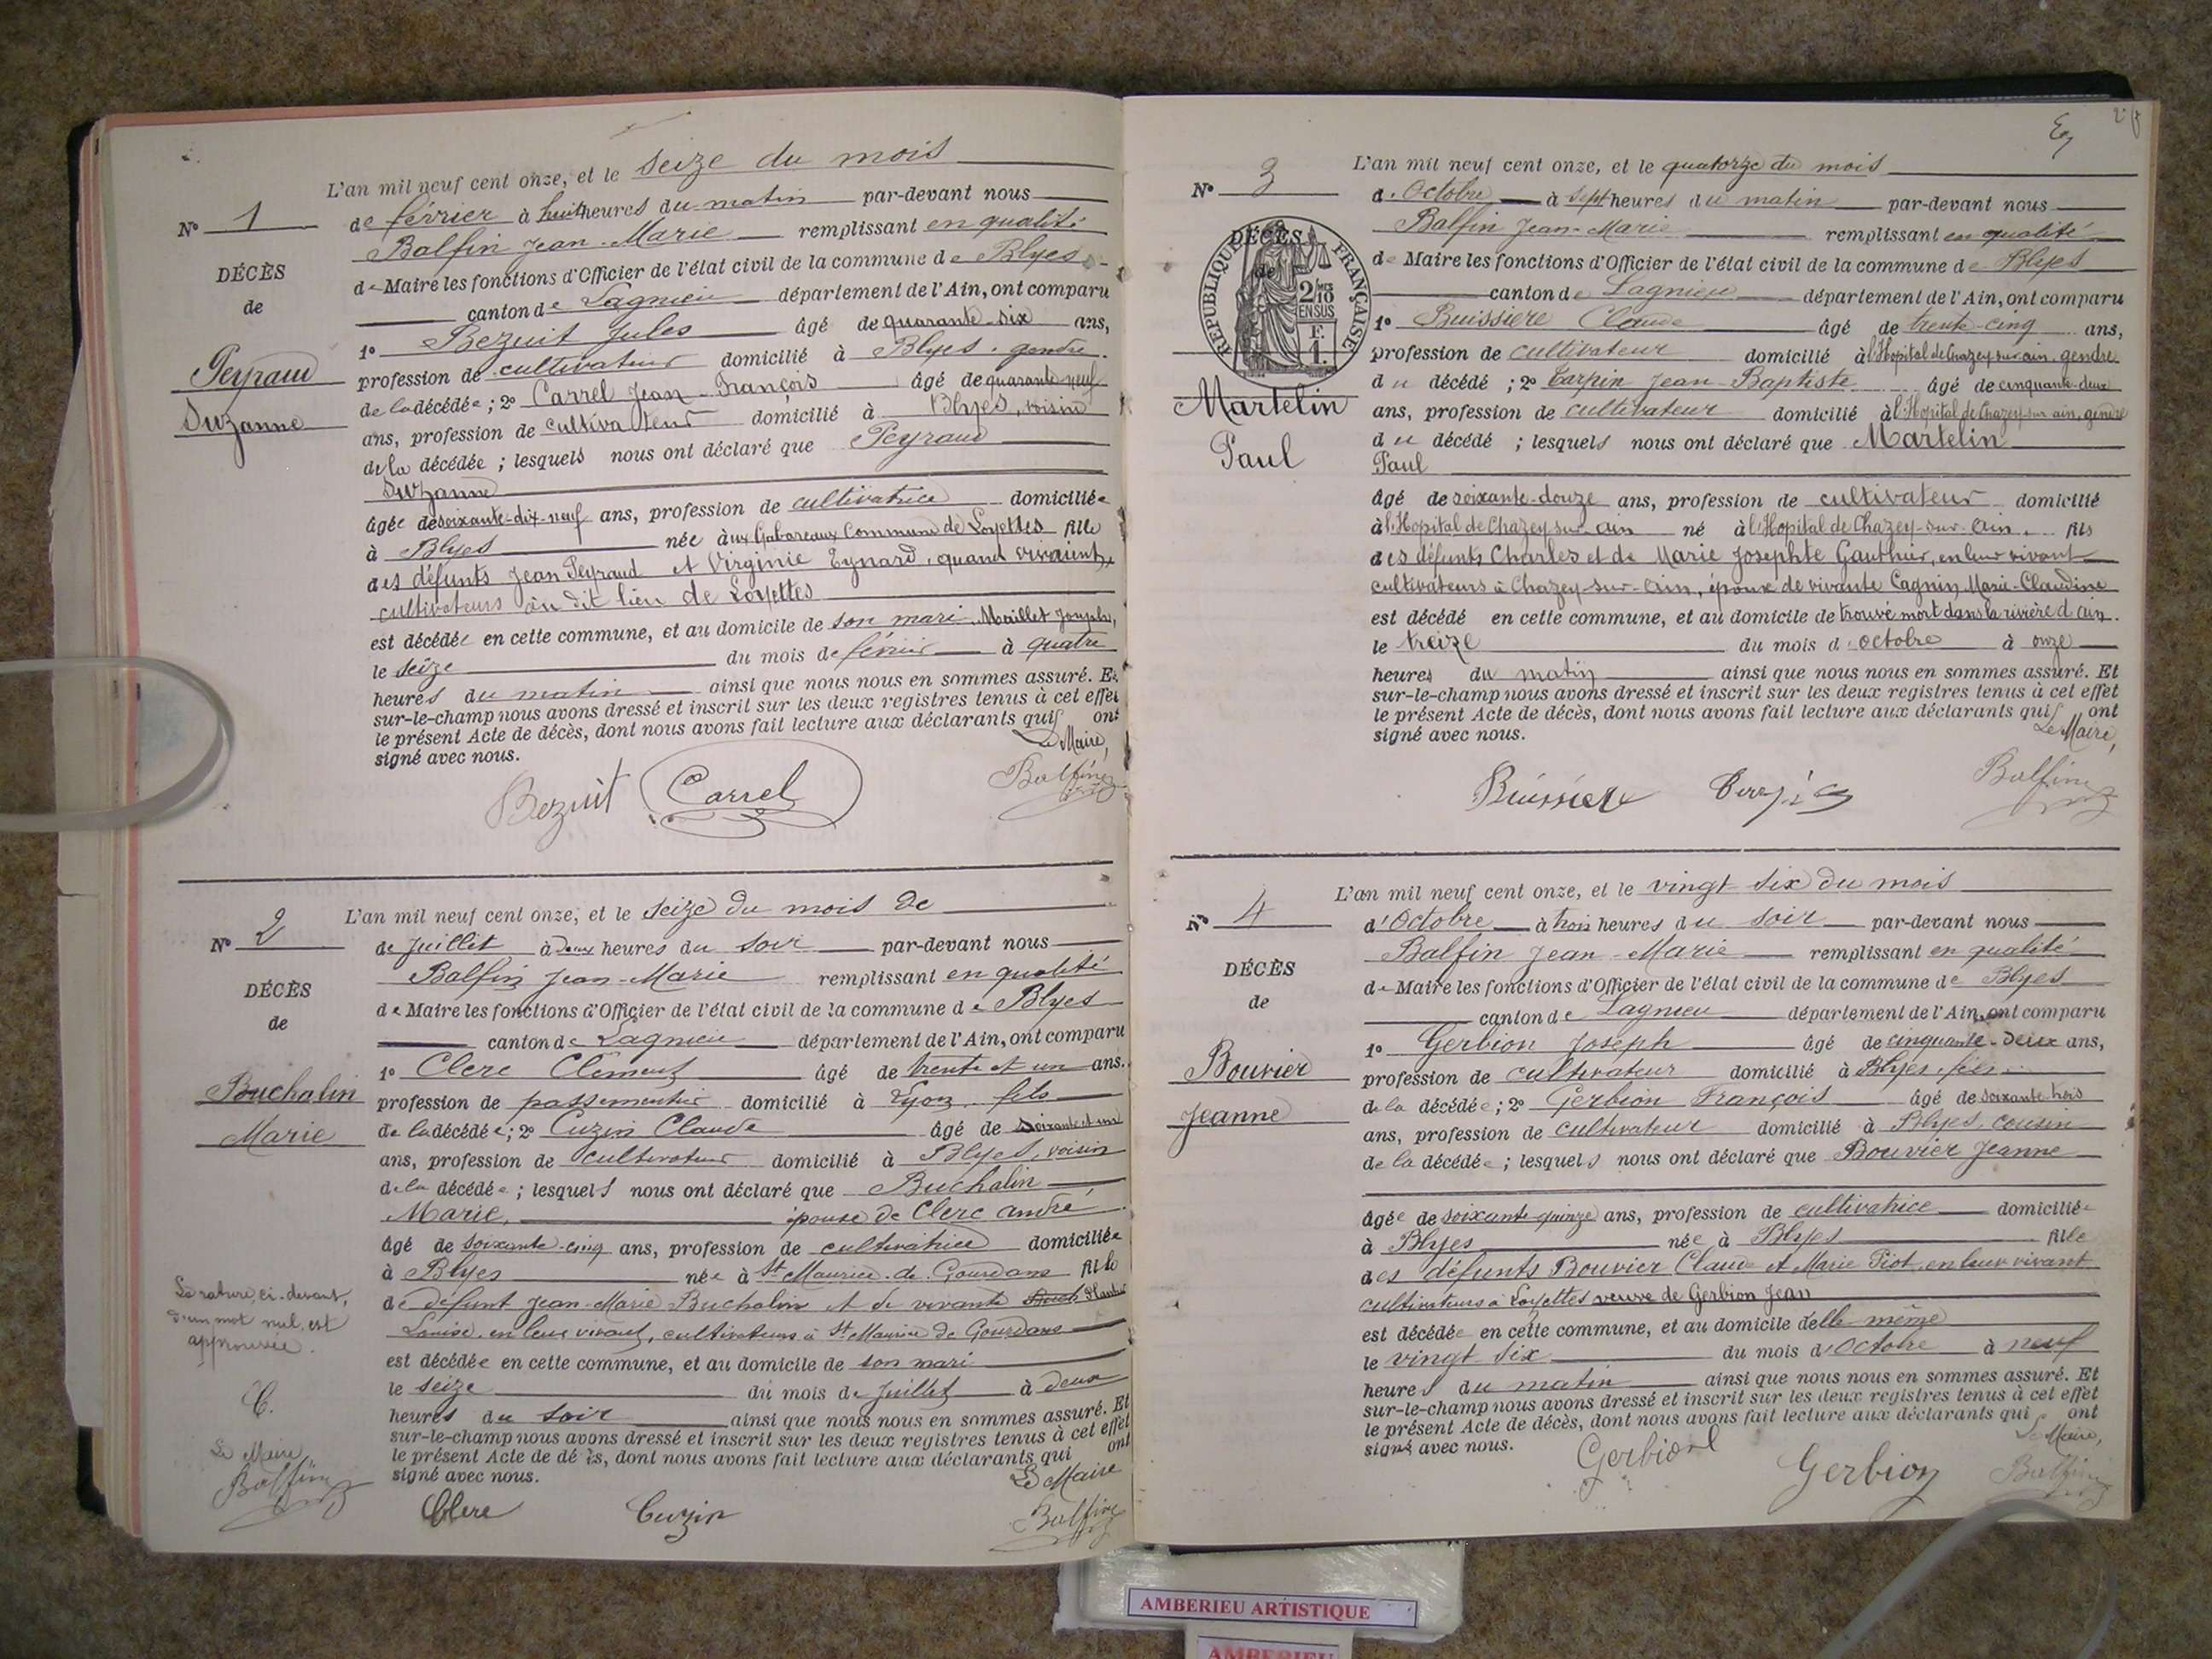 L'an mil neuf cent onze, et le seize du mois
N° 1
de février à huit heures du matin par-devant nous
Balfin Jean-Marie remplissant en qualité
de Maire les fonctions d'Officier de l'état civil de la commune de Blyes
DÉCÈS
de
canton de Lagnieu département de l'Ain, ont comparu
1° Bezuit Jules âgé de quarante-six ans,
Peyraud
Suzanne
profession de cultivateur domicilié à Blyes, gendre
de la décédée; 2° Carrel Jean-François âgé de quarante neuf
ans, profession de cultivateur domicilié à Blyes, voisin
de la décédée; lesquels nous ont déclaré que Peyraud
Suzanne
âgée de soixante-dix-neuf ans, profession de cultivatrice domiciliée
à Blyes née aux Gaboreaux Commune de Loyettes fille
des défunts Jean Peyraud et Virginie Eynard, quand vivaient,
cultivateurs au dit lieu de Loyettes
est décédée en cette commune, et au domicile de son mari Maillet Joseph,
le seize du mois de février à quatre
heures du matin ainsi que nous nous en sommes assuré. Et
sur-le-champ nous avons dressé et inscrit sur les deux registres tenus à cet effet
le présent Acte de décès, dont nous avons fait lecture aux déclarants qui ont
signé avec nous.
Le Maire,
Bezuit Carrel Balfin
L'an mil neuf cent onze, et le seize du mois de
N° 2
de Juillet à deux heures du soir par-devant nous
Balfin Jean-Marie remplissant en qualité
DÉCÈS
de
de Maire les fonctions d'Officier de l'état civil de la commune de Blyes
canton de Lagnieu département de l'Ain, ont comparu
1° Clerc Clément âgé de trente et un ans.
Buchalin
Marie
profession de passementier domicilié à Lyon fils
de la décédée; 2° Cuzin Claude âgé de soixante et un
ans, profession de cultivateur domicilié à Blyes, voisin
de la décédée; lesquels nous ont déclaré que Buchalin
Marie, épouse de Clerc André
âgé de soixante-cinq ans, profession de cultivatrice domiciliée
à Blyes née à St Maurice-de-Gourdans fille
de défunt Jean-Marie Buchalin et de vivante
Louise, en leur vivant, cultivateurs à St Maurice de Gourdans
est décédée en cette commune, et au domicile de son mari
le seize du mois de Juillet à deux
heures du soir ainsi que nous nous en sommes assuré. Et
sur-le-champ nous avons dressé et inscrit sur les deux registres tenus à cet effet
le présent Acte de décès, dont nous avons fait lecture aux déclarants qui ont
signé avec nous.
Le Maire
Clerc Cuzin Balfin
La rature, ci-devant,
d'un mot nul, est
approuvée.
C.
Le Maire
Balfin
L'an mil neuf cent onze, et le quatorze du mois
N° 3
d'Octobre à sept heures du matin par-devant nous
Balfin Jean-Marie remplissant en qualité
de Maire les fonctions d'Officier de l'état civil de la commune de Blyes
DÉCÈS
de
RÉPUBLIQUE FRANÇAISE
2/10
EN SUS
F.
1.
canton de Lagnieu département de l'Ain, ont comparu
1° Buissiere Claude âgé de trente-cinq ans,
profession de cultivateur domicilié à l'Hopital de Chazey-sur-ain, gendre
du décédé; 2° Carpin Jean-Baptiste âgé de cinquante-deux
Martelin
Paul
ans, profession de cultivateur domicilié à l'Hopital de Chazey sur ain, gendre
du décédé; lesquels nous ont déclaré que Martelin
Paul
âgé de soixante-douze ans, profession de cultivateur domicilié
à l'Hopital de Chazey-sur-ain né à l'Hopital de Chazey-sur-ain. fils
des défunts Charles et de Marie Josephte Gauthier, en leur vivant
cultivateurs à Chazey-sur-Ain, époux de vivante Cagnin Marie-Claudine
est décédé en cette commune, et au domicile de trouvé mort dans la rivière d'ain.
le treize du mois d'octobre à onze
heures du matin ainsi que nous nous en sommes assuré. Et
sur-le-champ nous avons dressé et inscrit sur les deux registres tenus à cet effet
le présent Acte de décès, dont nous avons fait lecture aux déclarants qui ont
signé avec nous.
Le Maire,
Buissiere Balfin
L'an mil neuf cent onze, et le vingt six du mois
N° 4
d'Octobre à trois heures du soir par-devant nous
Balfin Jean-Marie remplissant en qualité
DÉCÈS
de
de Maire les fonctions d'Officier de l'état civil de la commune de Blyes
canton de Lagnieu département de l'Ain, ont comparu
1° Gerbion Joseph âgé de cinquante-deux ans,
Bouvier
Jeanne
profession de cultivateur domicilié à Blyes
de la décédée; 2° Gerbion François âgé de soixante trois
ans, profession de cultivateur domicilié à Blyes, cousin
de la décédée; lesquels nous ont déclaré que Bouvier Jeanne
âgée de soixante quinze ans, profession de cultivatrice domiciliée
à Blyes née à Blyes fille
des défunts Bouvier Claude et Marie Piot, en leur vivant
cultivateurs à Loyettes veuve de Gerbion Jean
est décédée en cette commune, et au domicile d'elle-même
le vingt six du mois d'Octobre à neuf
heures du matin ainsi que nous nous en sommes assuré. Et
sur-le-champ nous avons dressé et inscrit sur les deux registres tenus à cet effet
le présent Acte de décès, dont nous avons fait lecture aux déclarants qui ont
signé avec nous.
Le Maire,
Gerbion Gerbion Balfin
AMBERIEU ARTISTIQUE
AMBERIEU